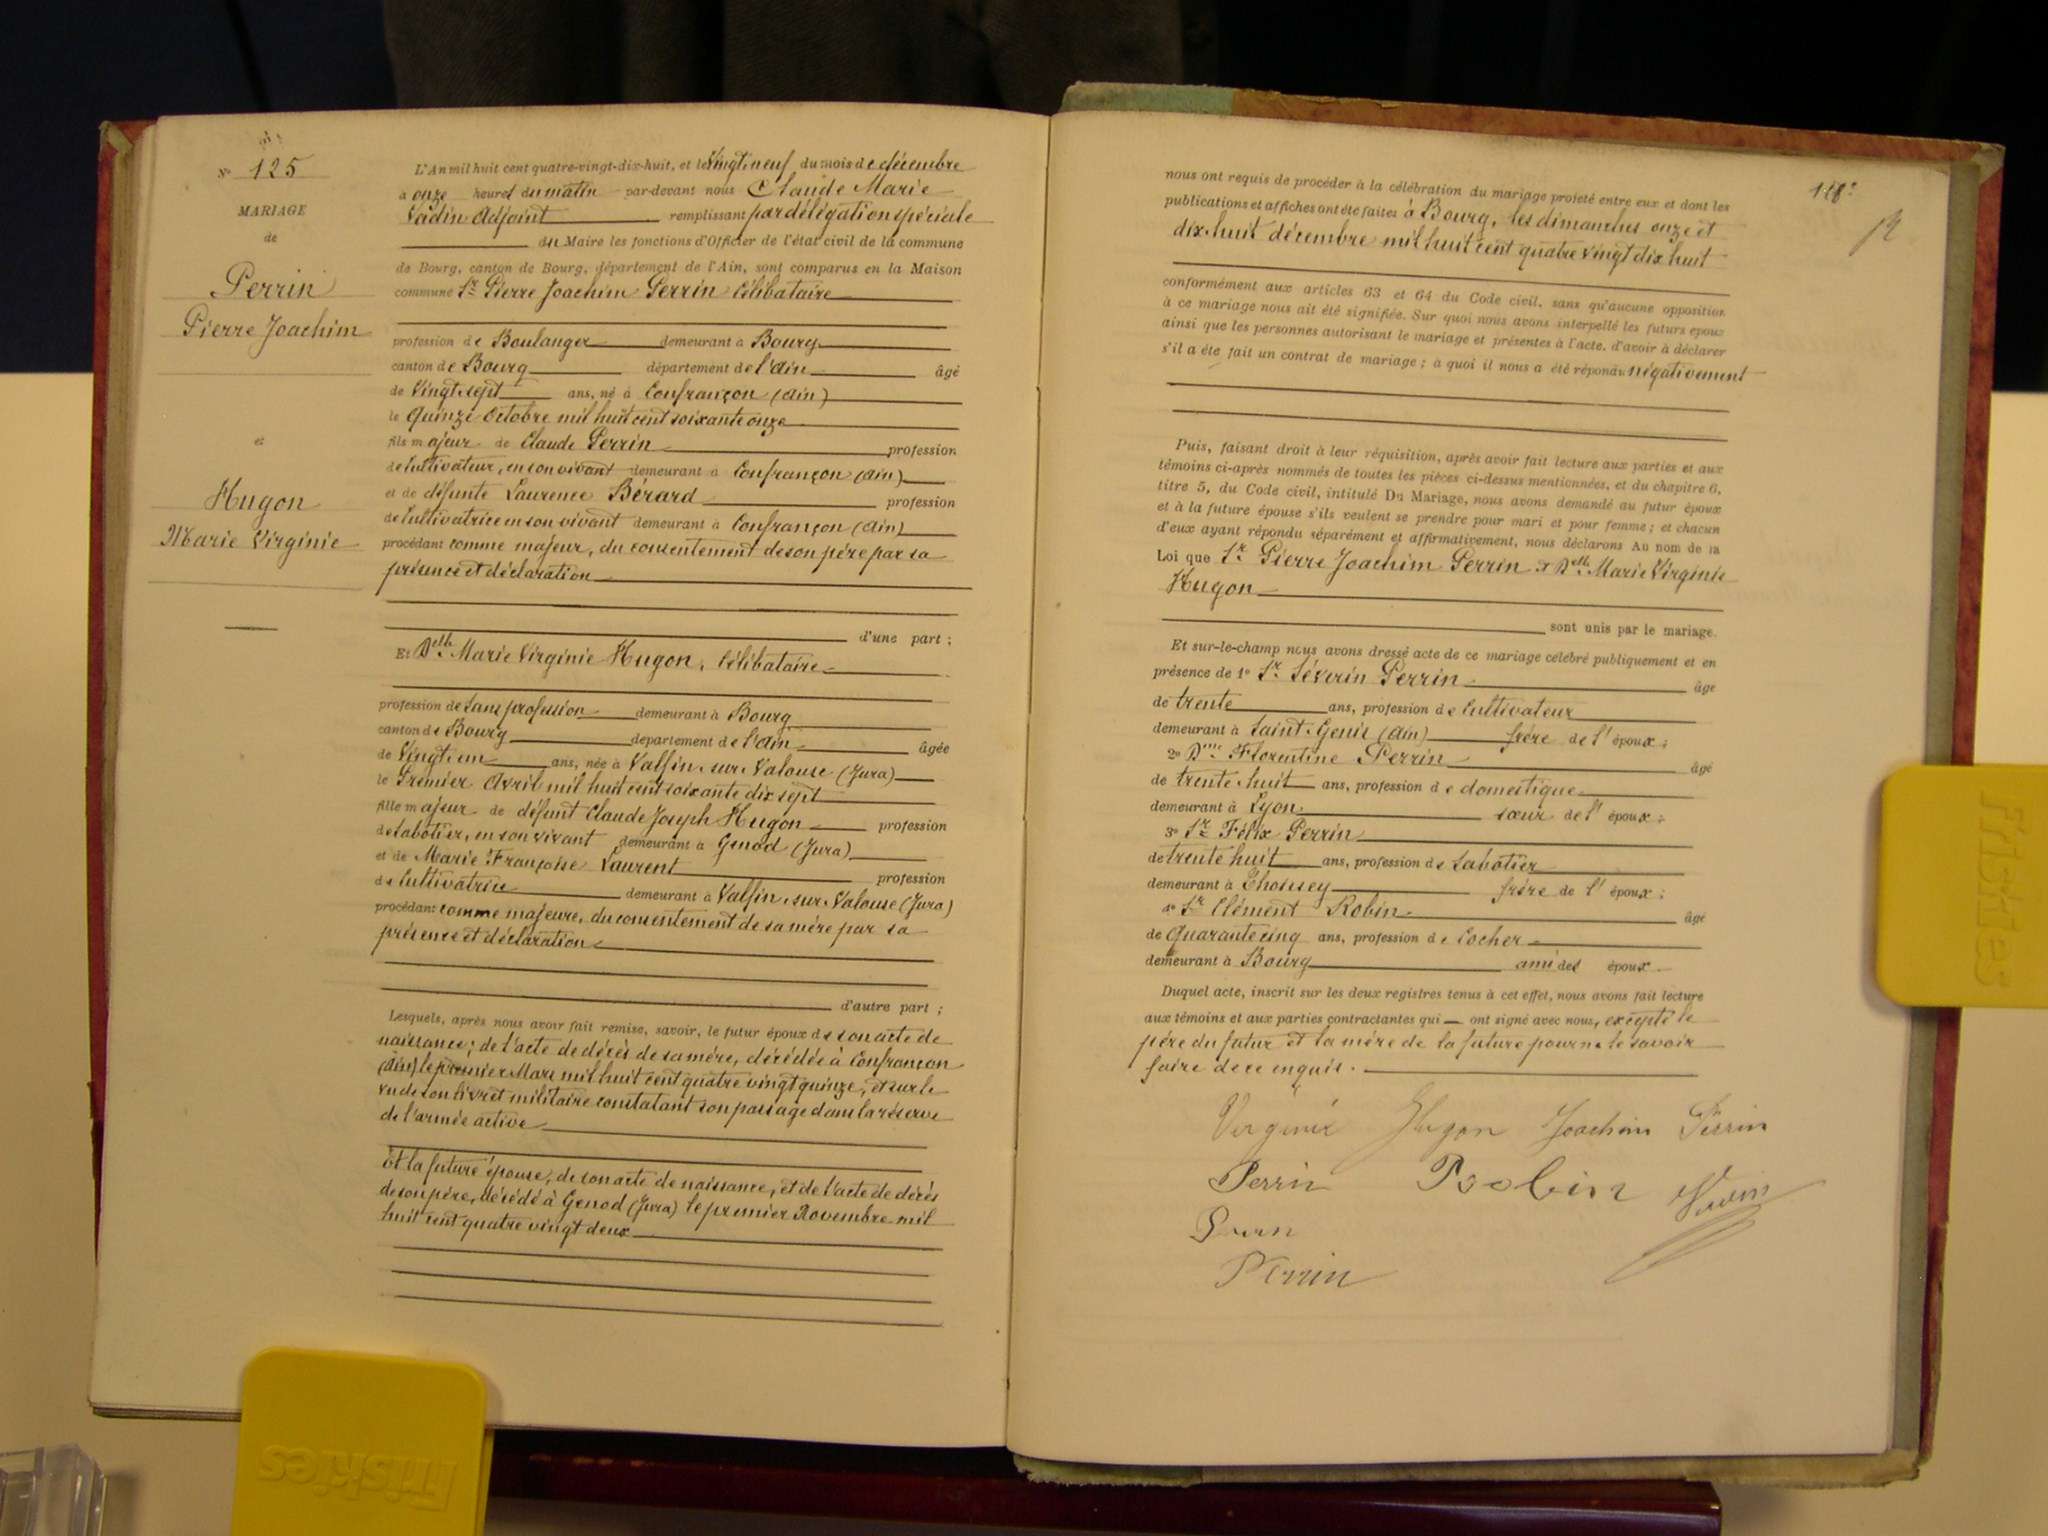 N° 125
MARIAGE
de
Perrin
Pierre Joachim
et
Hugon
Marie Virginie
L'An mil huit cent quatre-vingt-dix-huit, et le Vingt neuf du mois de décembre
à onze heures du matin par-devant nous Claude Marie
Vadin Adjoint remplissant par délégation spéciale
du Maire les fonctions d'Officier de l'état civil de la commune
de Bourg, canton de Bourg, département de l'Ain, sont comparus en la Maison
commune Sr Pierre Joachim Perrin Célibataire
profession de Boulanger demeurant à Bourg
canton de Bourg département de l'Ain âgé
de Vingt sept ans, né à Confrançon (Ain)
le Quinze Octobre mil huit cent soixante onze
fils majeur de Claude Perrin profession
de Cultivateur, en son vivant demeurant à Confrançon (Ain)
et de défunte Laurence Bérard profession
de Cultivatrice en son vivant demeurant à Confrançon (Ain)
procédant comme majeur, du consentement de son père par sa
présence et déclaration
d'une part ;
Et Delle Marie Virginie Hugon, Célibataire
profession de sans profession demeurant à Bourg
canton de Bourg département de l'Ain âgée
de Vingt un ans, née à Valfin sur Valouse (Jura)
le Premier Avril mil huit cent soixante dix sept
fille majeur de défunt Claude Joseph Hugon profession
de Sabotier, en son vivant demeurant à Genod (Jura)
et de Marie Françoise Laurent profession
de Cultivatrice demeurant à Valfin sur Valouse (Jura)
procédant comme majeure, du consentement de sa mère par sa
présence et déclaration
d'autre part ;
Lesquels, après nous avoir fait remise, savoir, le futur époux de son acte de
naissance ; de l'acte de décès de sa mère, décédée à Confrançon
(Ain) le premier Mars mil huit cent quatre vingt quinze, et sur le
vu de son livret militaire constatant son passage dans la réserve
de l'armée active
Et la future épouse, de son acte de naissance, et de l'acte de décès
de son père, décédé à Genod (Jura) le premier Novembre mil
huit cent quatre vingt deux
118
nous ont requis de procéder à la célébration du mariage projeté entre eux et dont les
publications et affiches ont été faites à Bourg, les dimanches onze et
dix-huit décembre mil huit cent quatre vingt dix huit
conformément aux articles 63 et 64 du Code civil, sans qu'aucune opposition
à ce mariage nous ait été signifiée. Sur quoi nous avons interpellé les futurs époux
ainsi que les personnes autorisant le mariage et présentes à l'acte, d'avoir à déclarer
s'il a été fait un contrat de mariage ; à quoi il nous a été répondu négativement
Puis, faisant droit à leur réquisition, après avoir fait lecture aux parties et aux
témoins ci-après nommés de toutes les pièces ci-dessus mentionnées, et du chapitre 6,
titre 5, du Code civil, intitulé Du Mariage, nous avons demandé au futur époux
et à la future épouse s'ils veulent se prendre pour mari et pour femme ; et chacun
d'eux ayant répondu séparément et affirmativement, nous déclarons Au nom de la
Loi que Sr Pierre Joachim Perrin et Delle Marie Virginie
Hugon
sont unis par le mariage.
Et sur-le-champ nous avons dressé acte de ce mariage célébré publiquement et en
présence de 1° Sr Séverin Perrin âgé
de trente ans, profession de Cultivateur
demeurant à Saint-Genis (Ain) frère de l'époux ;
2° Dme Florentine Perrin âgé
de trente huit ans, profession de domestique
demeurant à Lyon sœur de l'époux ;
3° Sr Félix Perrin
de trente huit ans, profession de Sabotier
demeurant à Thoissey frère de l'époux ;
4° Sr Clément Robin âgé
de Quarante cinq ans, profession de Cocher
demeurant à Bourg ami des époux
Duquel acte, inscrit sur les deux registres tenus à cet effet, nous avons fait lecture
aux témoins et aux parties contractantes qui ont signé avec nous, excepté le
père du futur et la mère de la future pour ne le savoir
faire de ce enquis.
Virginie Hugon Joachim Perrin
Perrin Robin Vadin
Perrin
Perrin
Friskies
Friskies